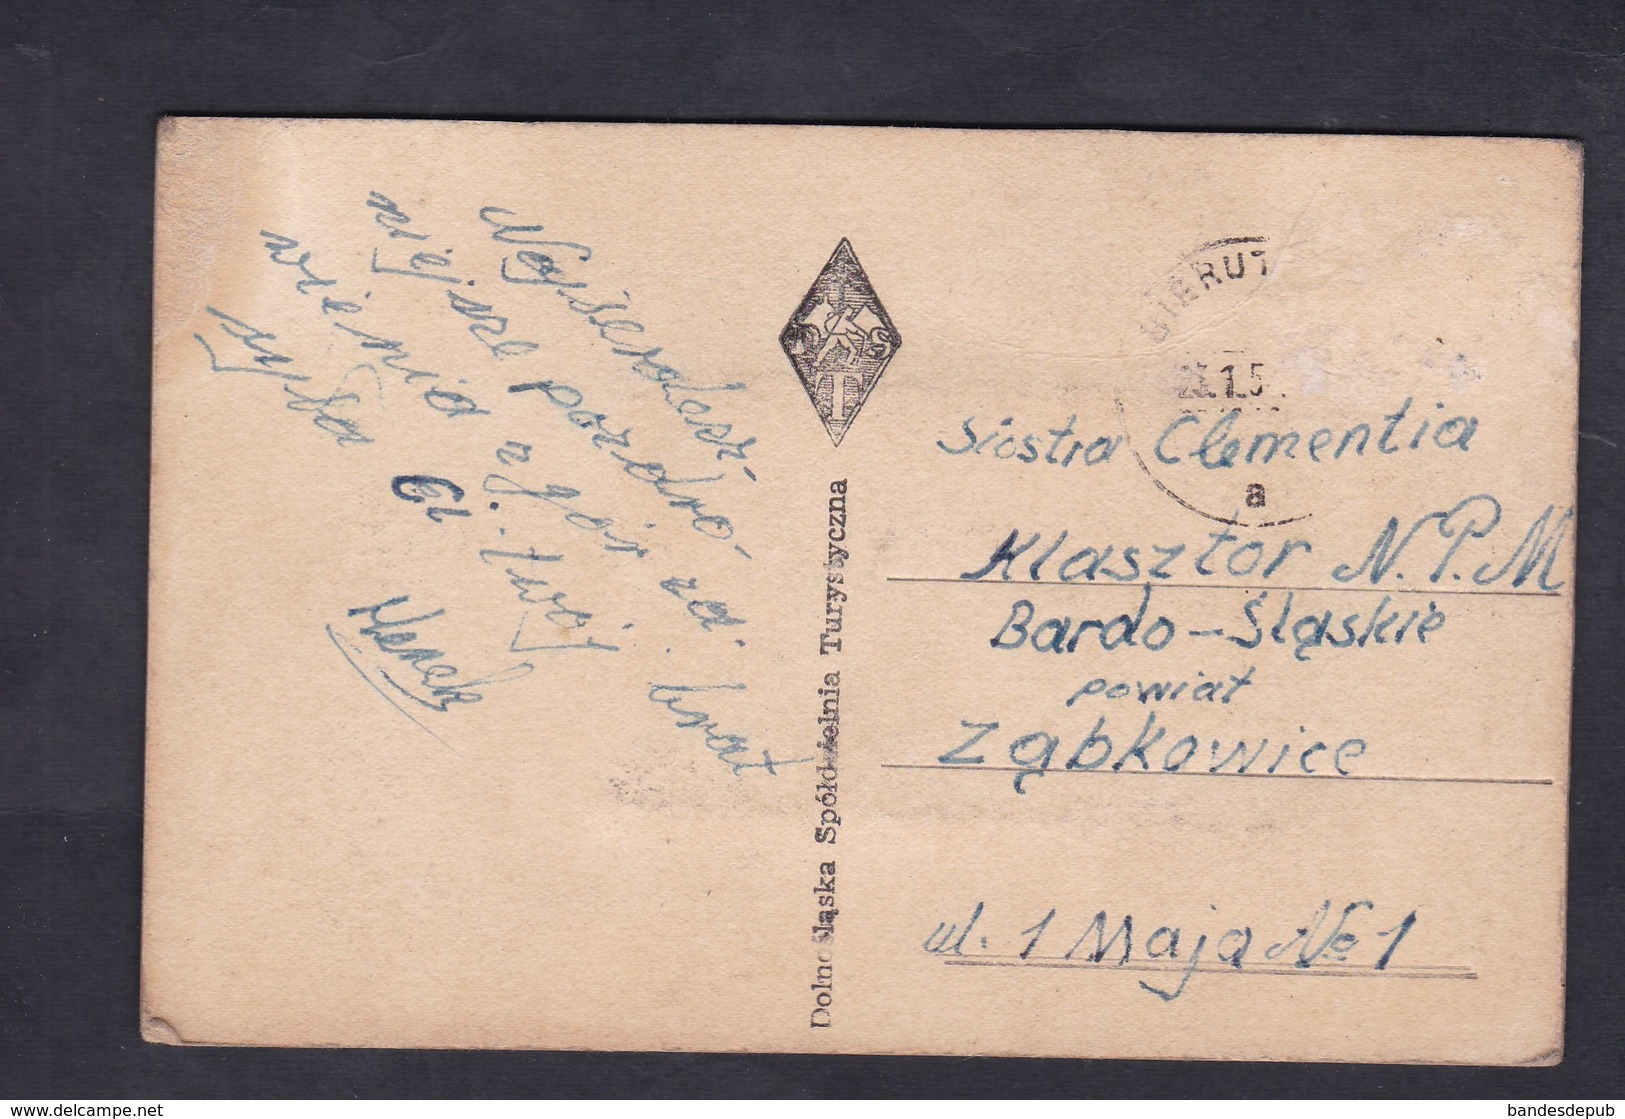 Najserdecz-
niejsze pozdro-
wienia z gór za-
syła Ci. twój brat
Henek
Dolnośląska Spółdzielnia Turystyczna
D S
T
BIERUT
1.5
a
Siostra Clementia
Klasztor N.P.M
Bardo-Śląskie
powiat
Ząbkowice
ul. 1 Maja No 1
www.delcampe.net
bandesdepub